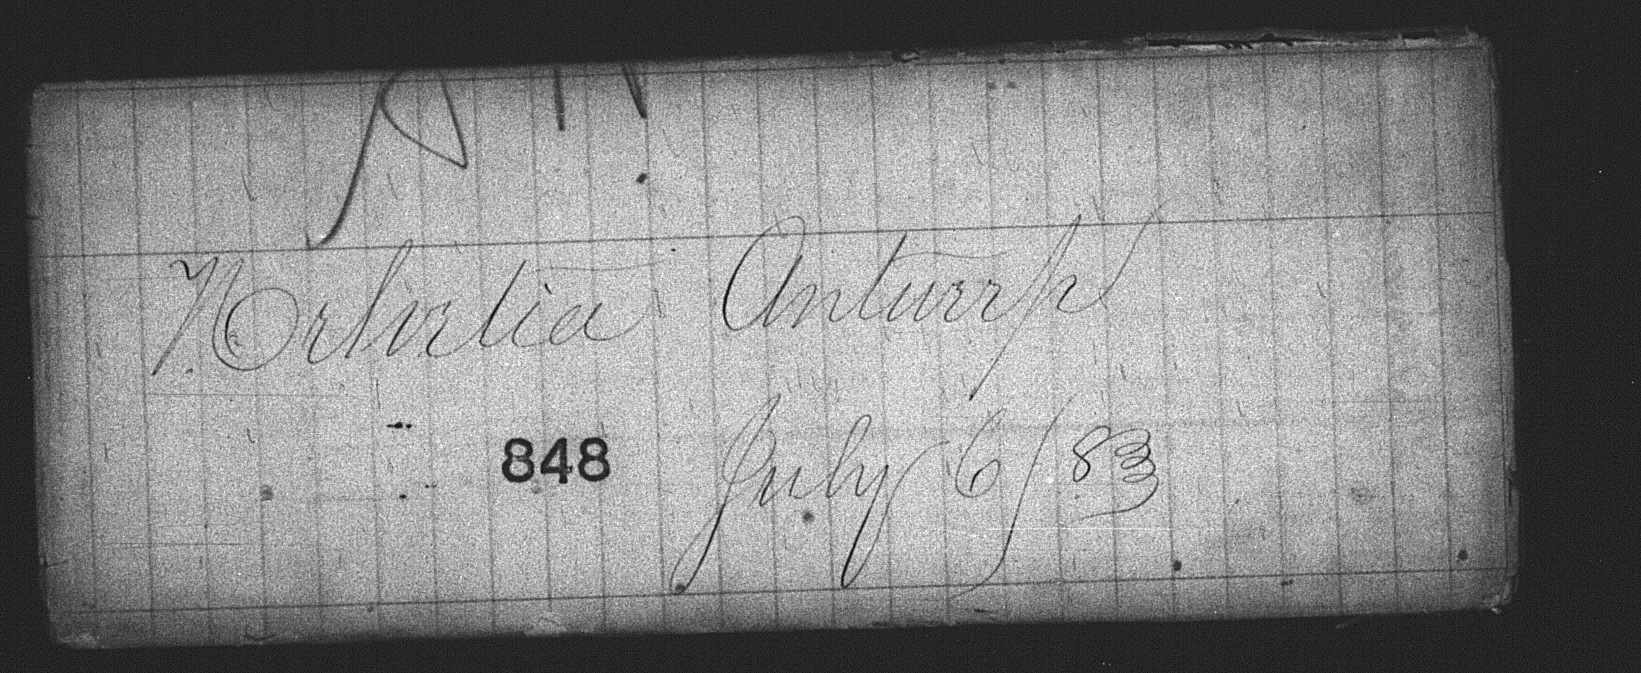 Helvetia Antwerp
848 July 6/83